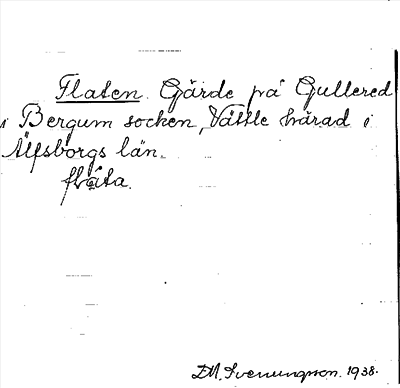 Flaten. Gärde på Gullered
i Bergum socken, Vättle härad i
Älfsborgs län.
flata.
1938.